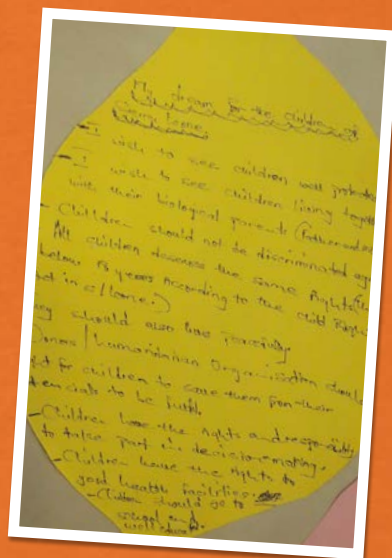 My dream for the children of
Sierra Leone
- I wish to see children well protected
- I wish to see children living together
with their biological parents (Father and mo
- Children should not be discriminated aga
All children deserves the same Rights (
below 18 years According to the Child Right
act in s/leone.)
They should also live peacefully
Donors / humanitarian Organisation should
for children to save them from their
potencials to be fulfil
- Children have the rights and responsibility
to take part in decision-making.
- Children have the rights to
good health facilities.
- Children should go to
school and
well